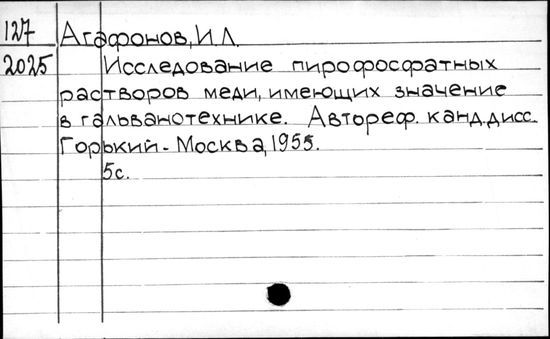 127 Агафонов, И.Л.
2025 Исследование пирофосфатных
растворов меди, имеющих значение
в гальванотехнике. Автореф. канд. дисс.
Горький - Москва, 1955.
5с.